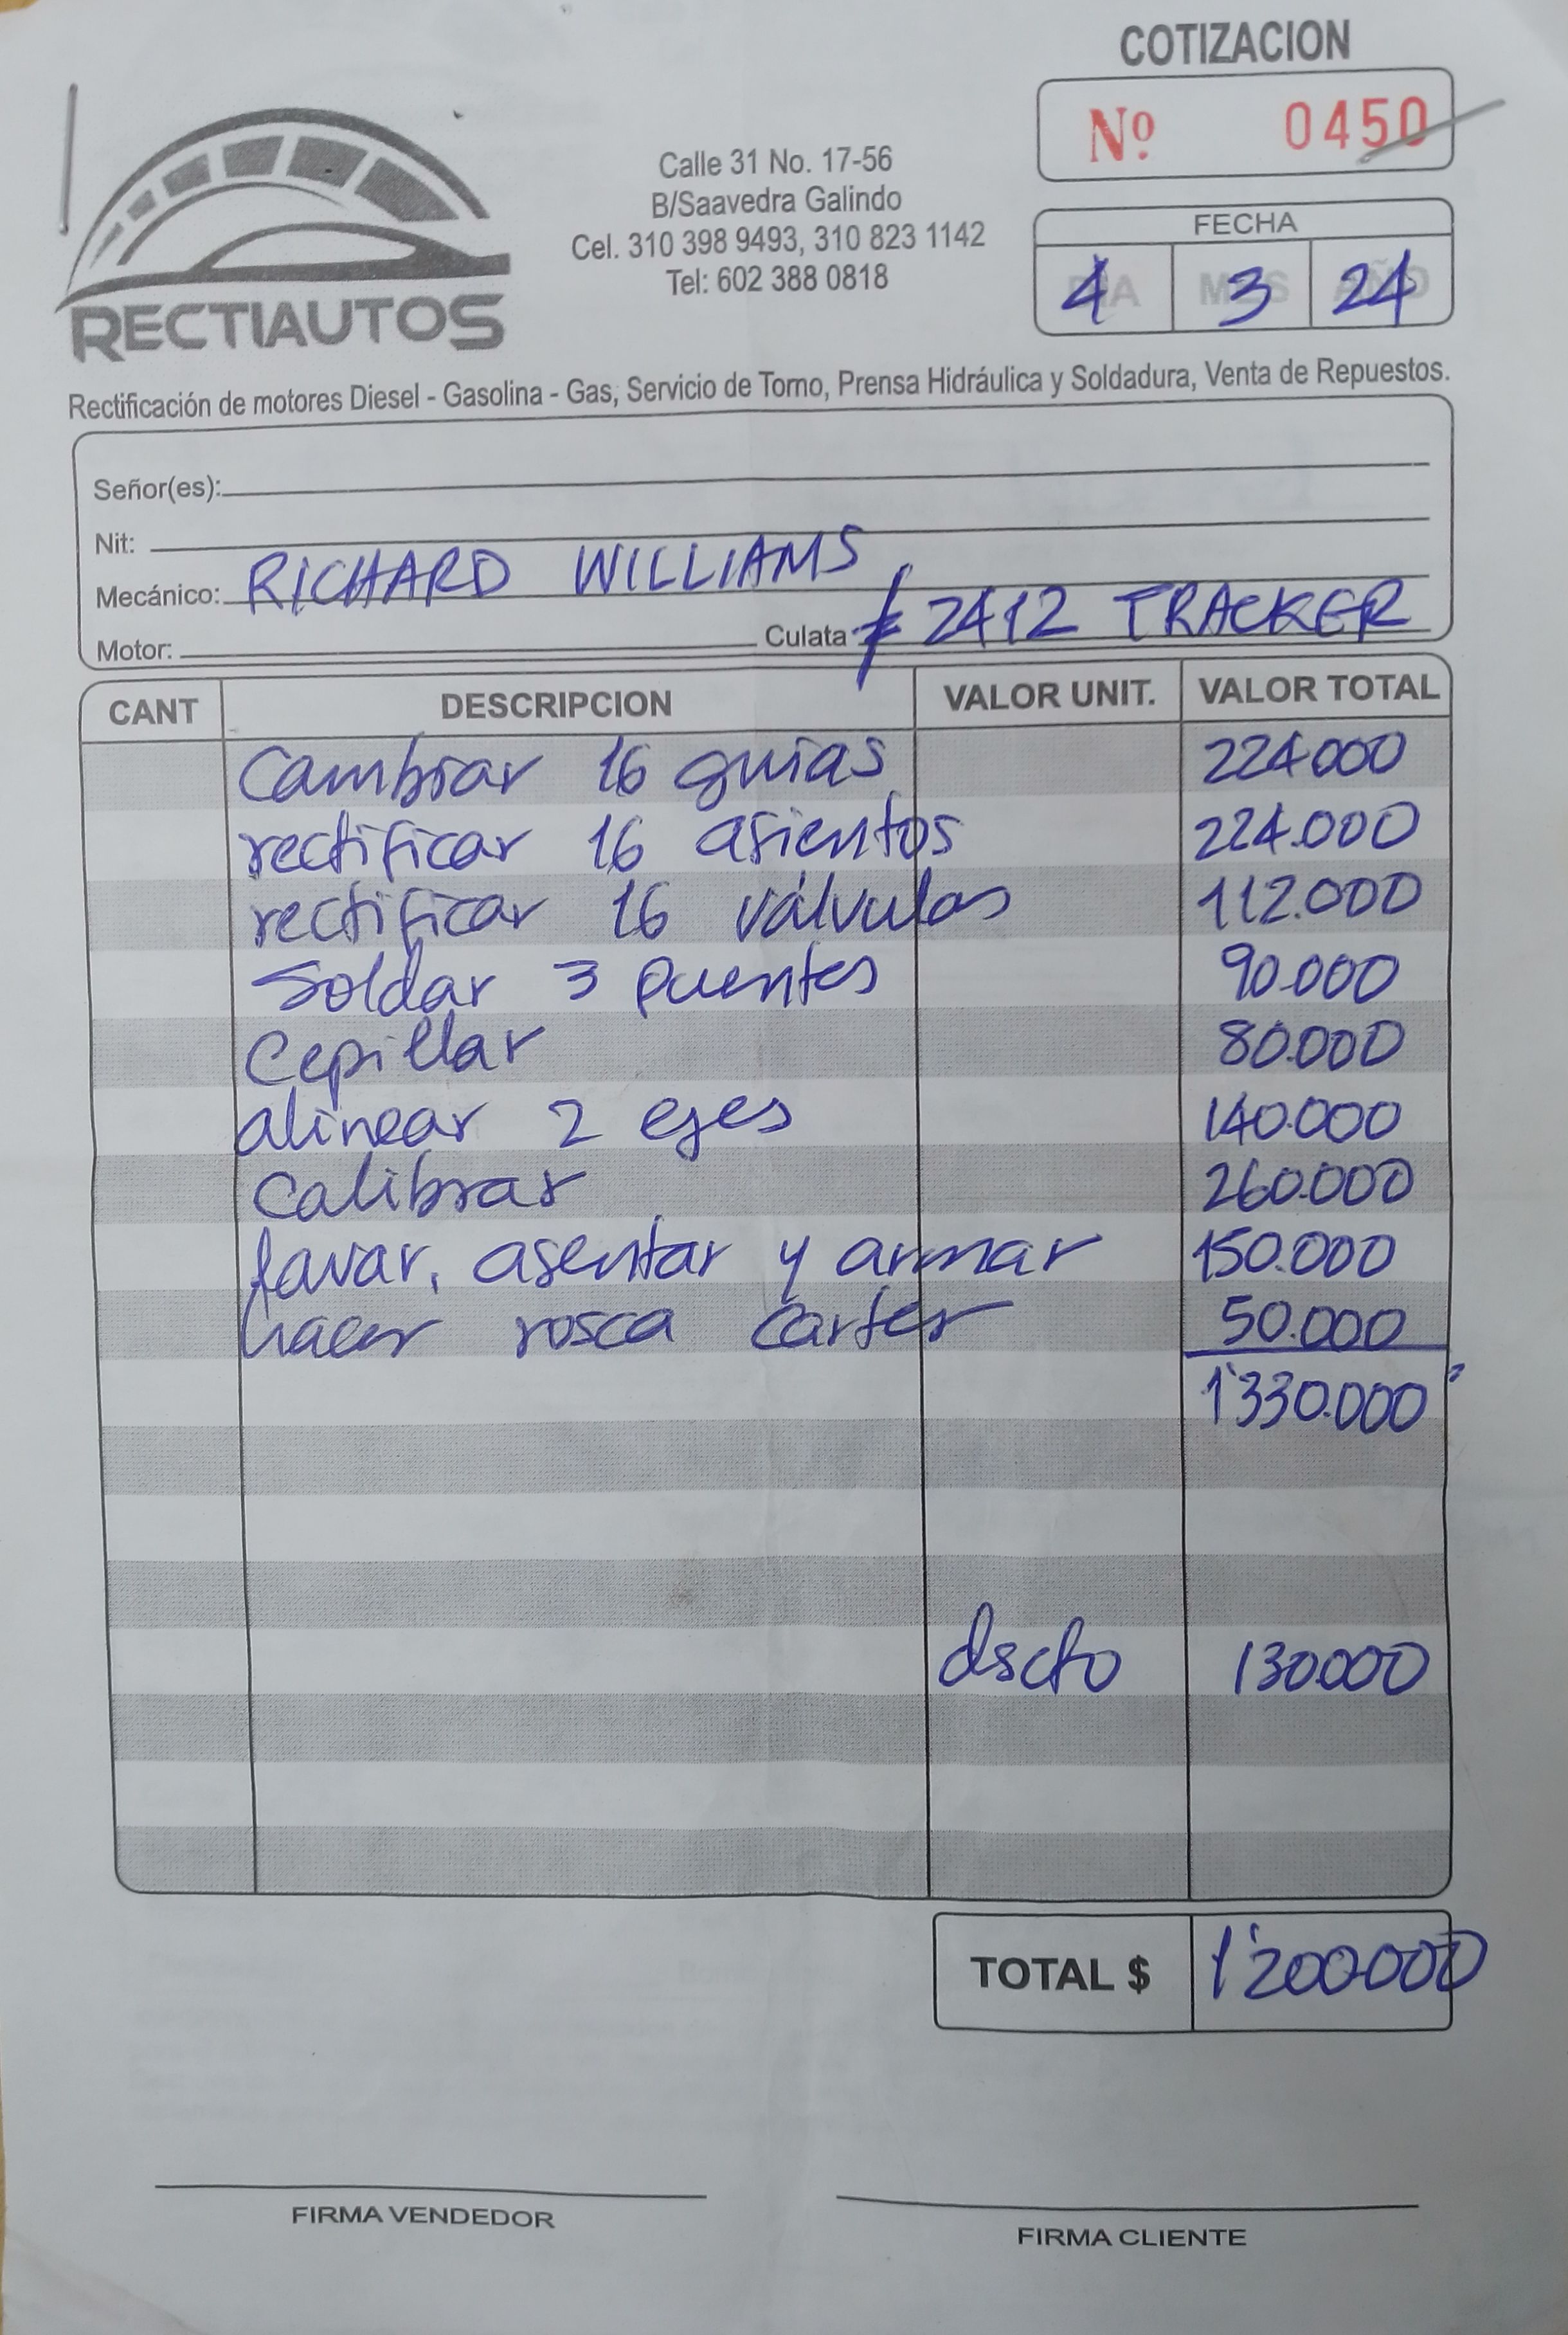 COTIZACION
Nº 0450
Calle 31 No. 17-56
B/Saavedra Galindo
Cel. 310 398 9493, 310 823 1142
Tel: 602 388 0818
FECHA
DIA MES AÑO
4 3 24
RECTIAUTOS
Rectificación de motores Diesel - Gasolina - Gas, Servicio de Torno, Prensa Hidráulica y Soldadura, Venta de Repuestos.
Señor(es):
Nit:
Mecánico: RICHARD WILLIAMS
Motor: Culata # 2412 TRACKER
CANT DESCRIPCION VALOR UNIT. VALOR TOTAL
Cambiar 16 guias 224000
rectificar 16 asientos 224.000
rectificar 16 válvulas 112.000
Soldar 3 puentes 90.000
Cepillar 80.000
alinear 2 ejes 140.000
Calibrar 260.000
lavar, asentar y armar 150.000
hacer rosca carter 50.000
1'330.000
dscto 130000
TOTAL $ 1'200000
FIRMA VENDEDOR
FIRMA CLIENTE